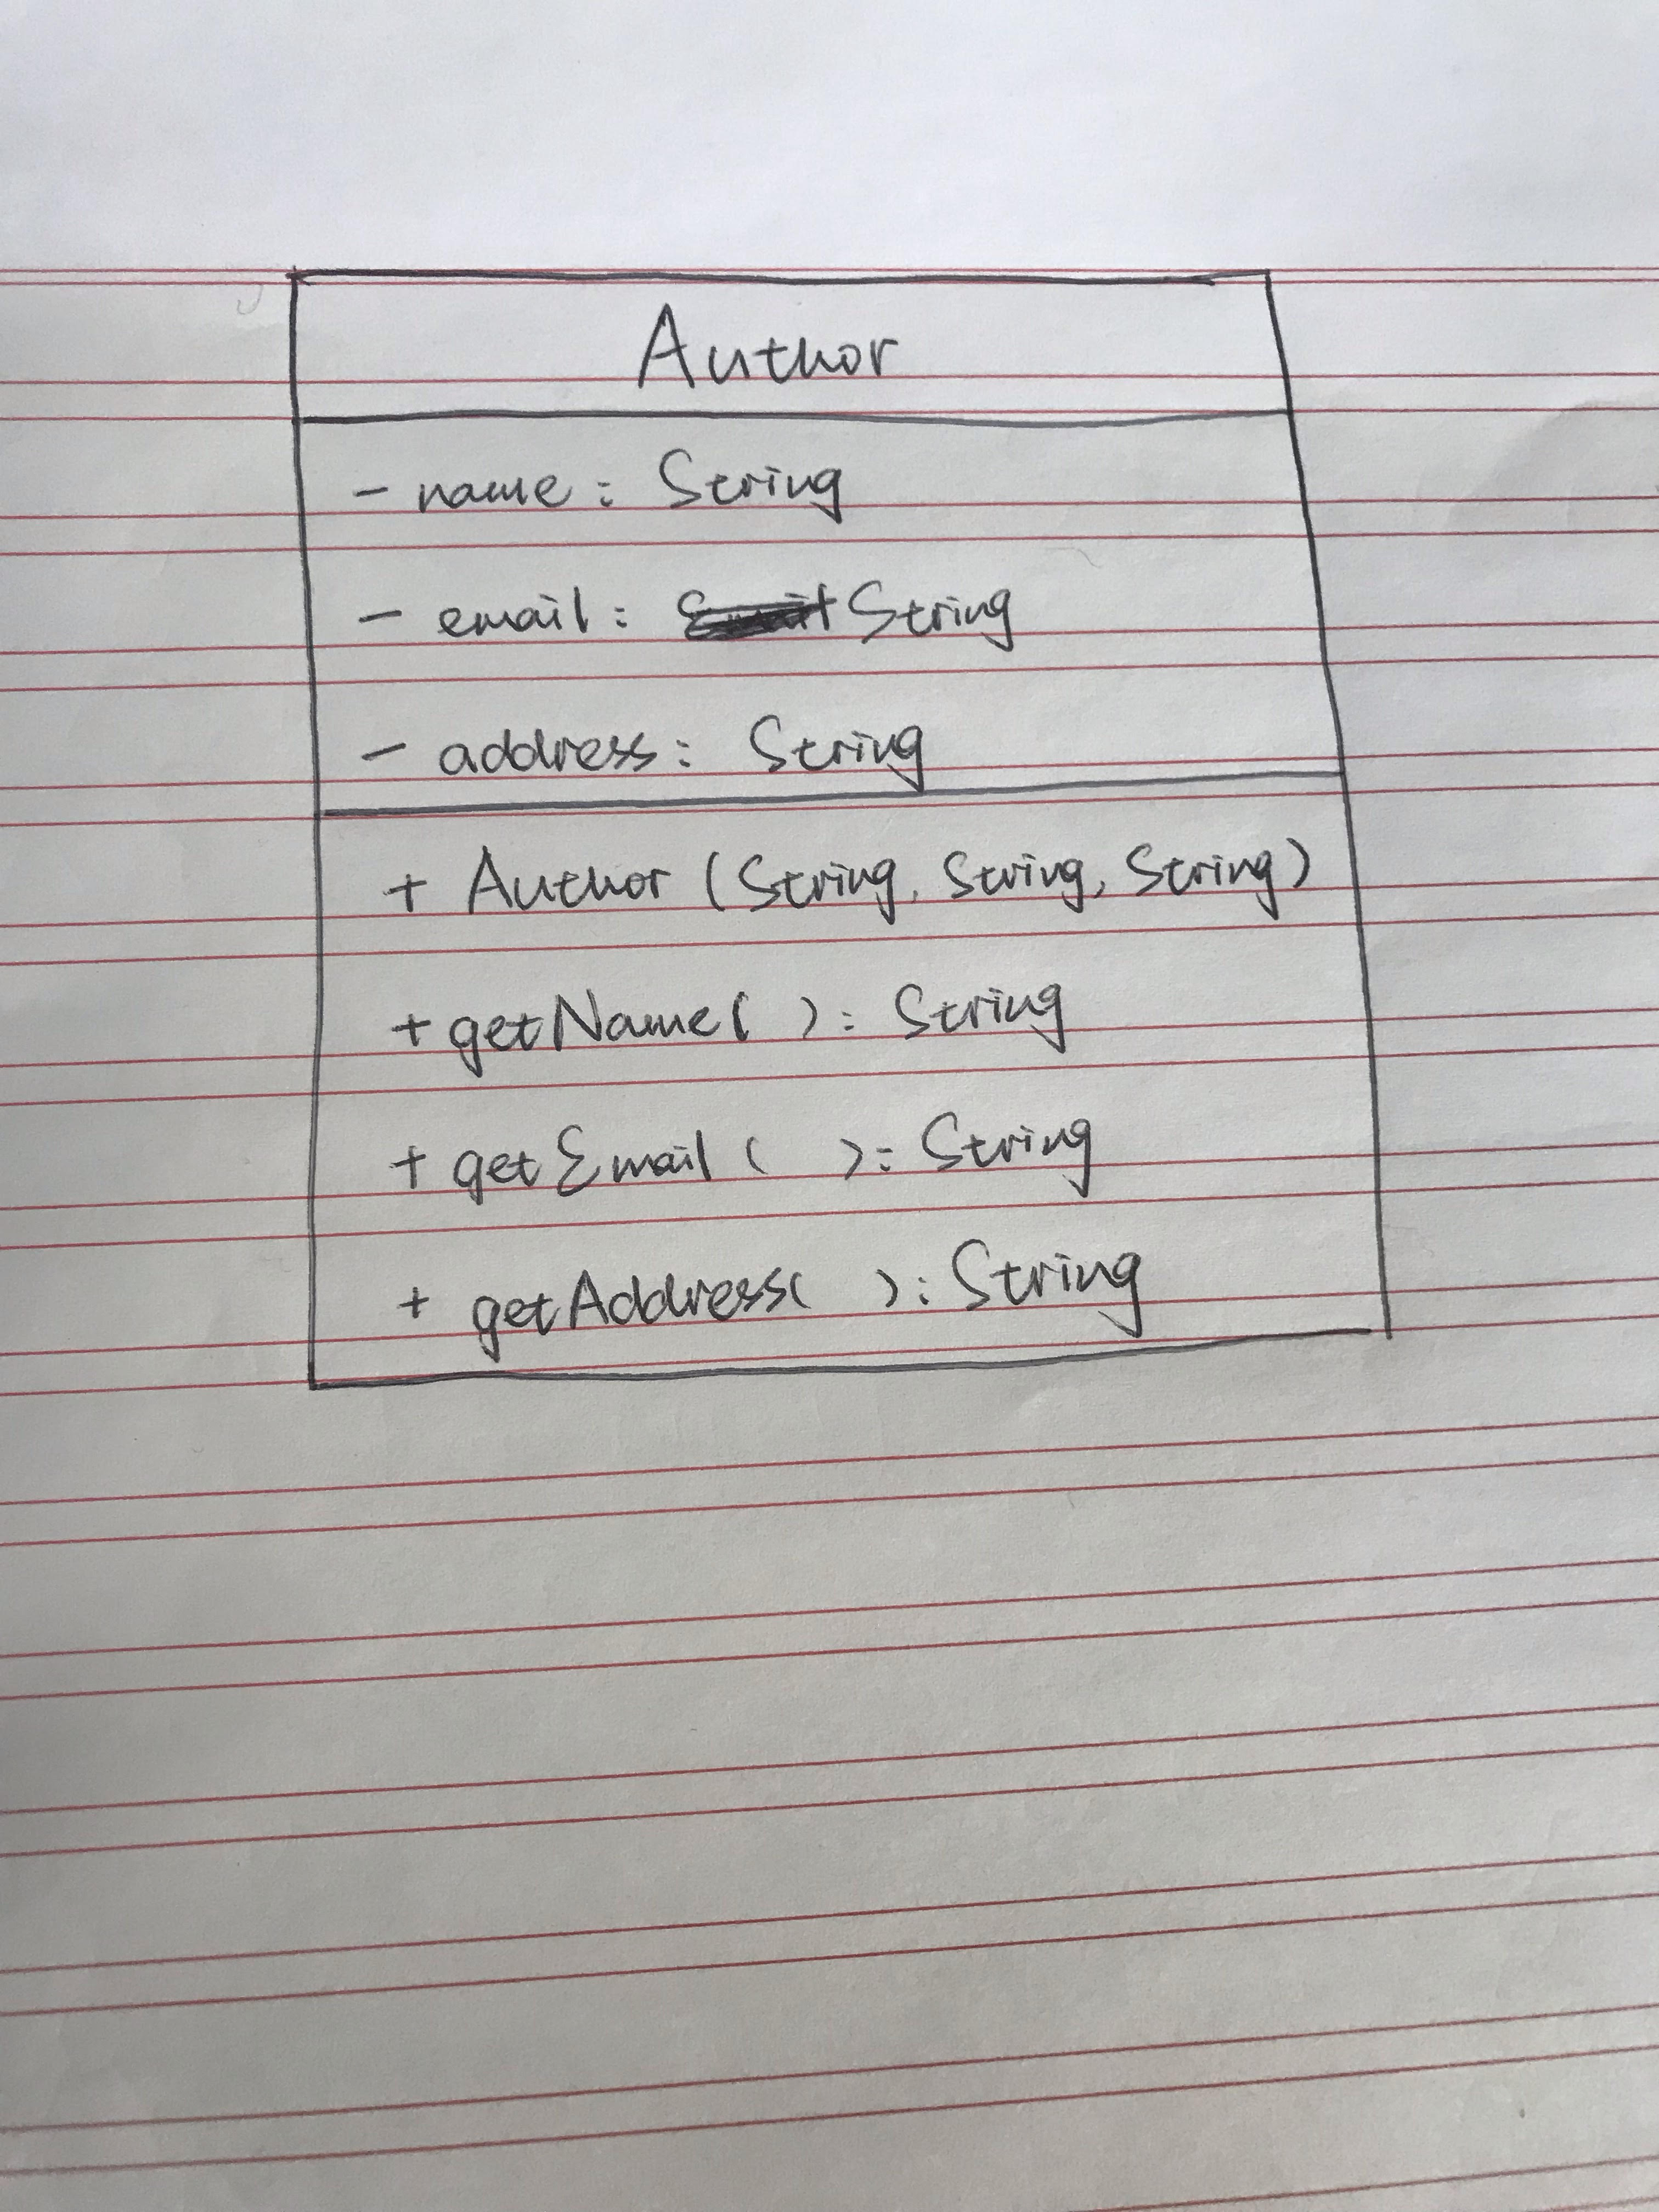 Author
- name: String
- email: String
- address: String
+ Author (String, String, String)
+ getName( ): String
+ getEmail ( ): String
+ getAddress( ): String